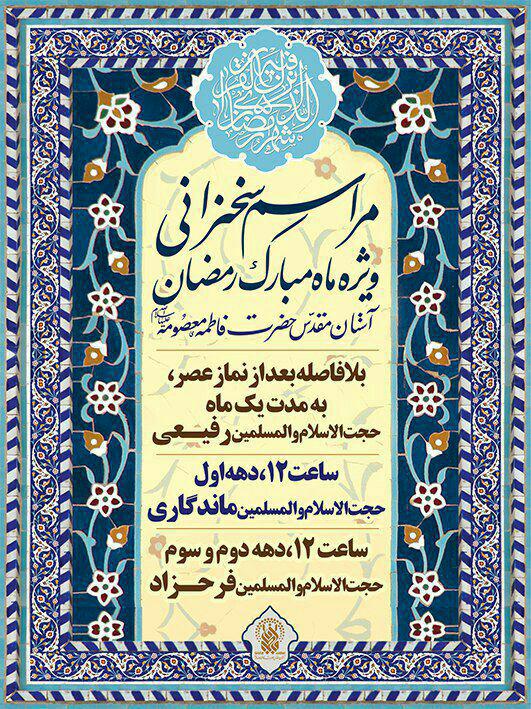 شهر رمضان الذی انزل فیه القرآن
مراسم سخنرانی
ویژه ماه مبارک رمضان
آستان مقدس حضرت فاطمه معصومه
بلافاصله بعد از نماز عصر،
به مدت یک ماه
حجت‌الاسلام والمسلمین رفیعی
ساعت ۱۲، دهه اول
حجت‌الاسلام والمسلمین ماندگاری
ساعت ۱۲، دهه دوم و سوم
حجت‌الاسلام والمسلمین فرحزاد